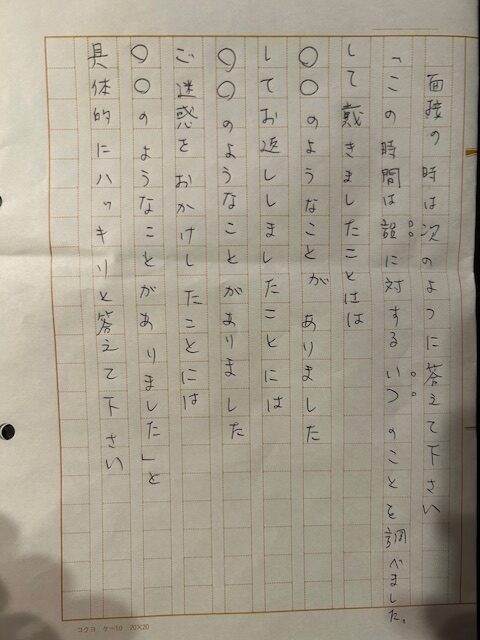 面接の時は次のように答えて下さい
「この時間は誰に対するいつのことを調べました。
して戴きましたことはは
〇〇のようなことがありました
してお返ししましたことには
〇〇のようなことがありました
ご迷惑をおかけしたことには
〇〇のようなことがありました」と
具体的にハッキリと答えて下さい
コクヨ ケ-10 20×20